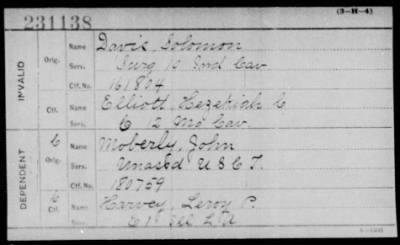 (3-H-4)
231138
INVALID
Orig. Name Davis, Solomon
Serv. Surg 10 Ind Cav
Ctf. No. 161804
Ctf. Name Elliott, Hezekiah C
Serv. C 12 Mo Cav
DEPENDENT
C
Orig. Name Moberly, John
Serv. Unassd U S C T.
Ctf. No. 180759
C
Ctf. Name Harvey, Leroy P.
Serv. C 1st Ill L A